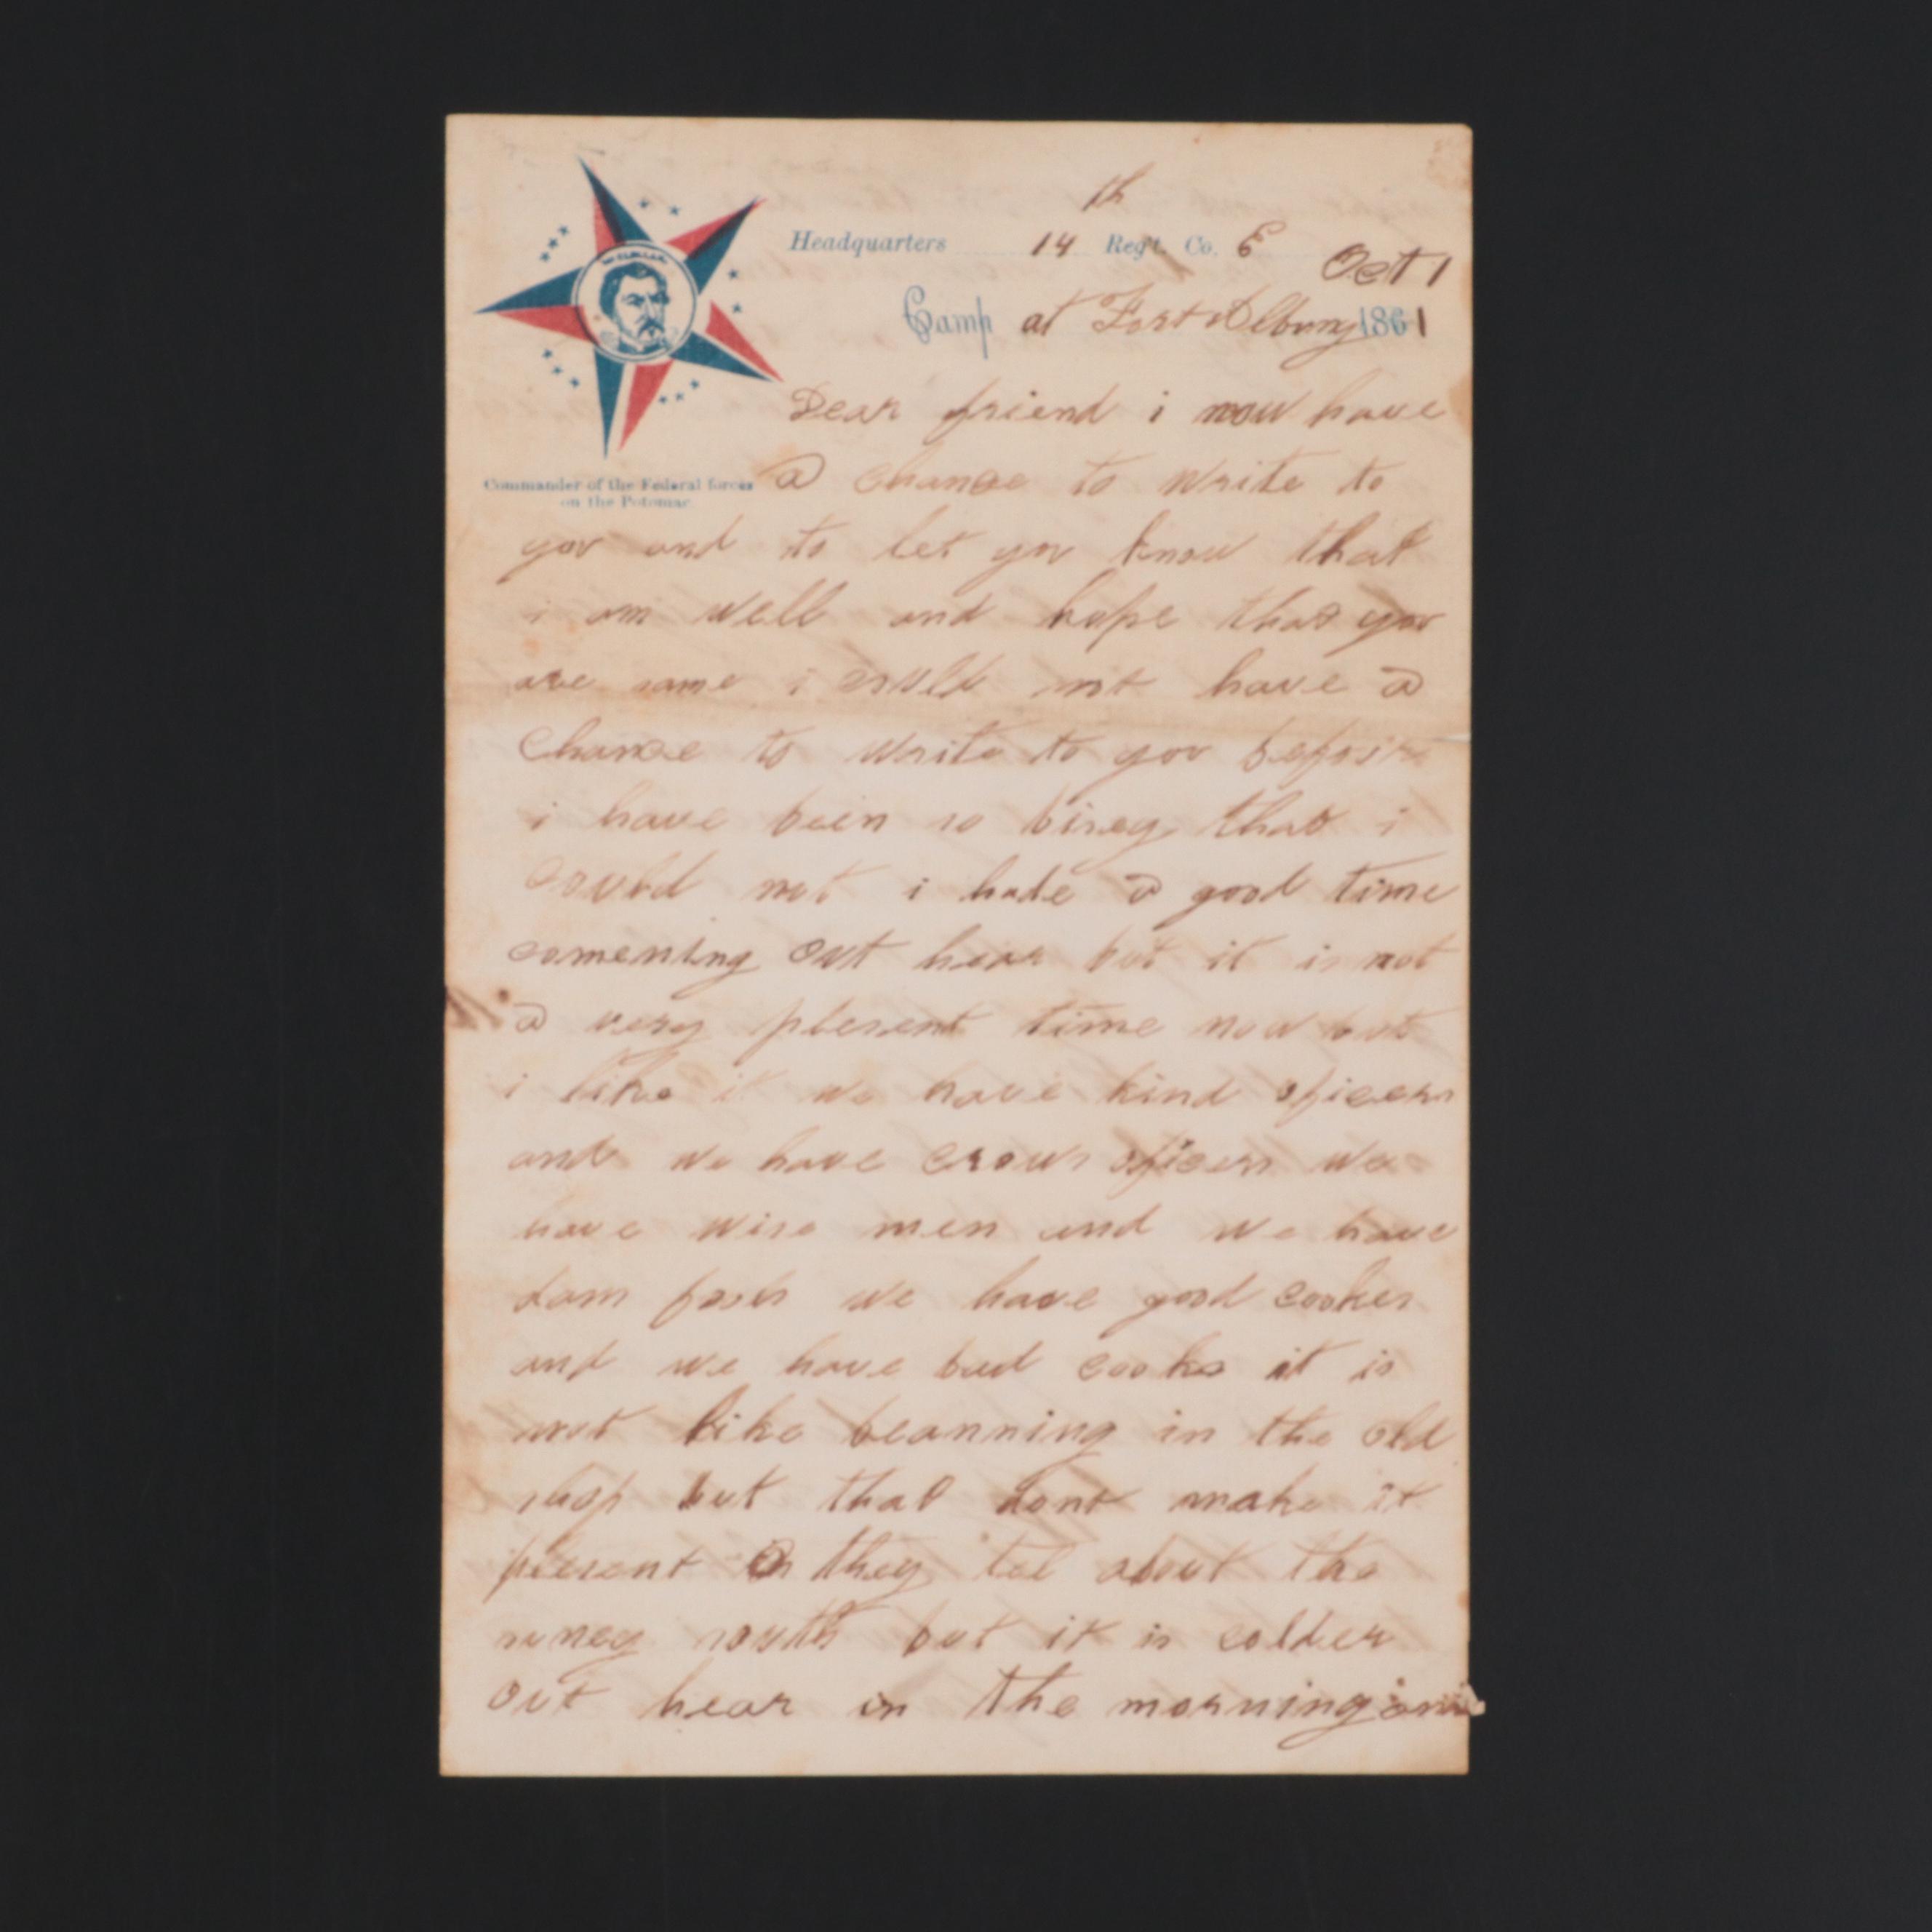 McCLELLAN
Headquarters 14th Regt. Co. E
Oct 1
Camp at Fort Albuny 1861
Dear friend i now have
Commander of the Federal forces
on the Potomac
a chance to write to
yov and to let yov know that
i am well and hope that yov
are same i could not have a
chance to write to yov before
i have been so bisey that i
could not i hade a good time
comening out hear but it is not
a very plesent time now but
i like it we have kind oficers
and we have crows oficers we
have wise men and we have
dam fools we have good cookes
and we have bad cooks it is
not like beanning in the old
shop but that dont make it
plesent they tel about the
suney south but it is colder
out hear in the morning